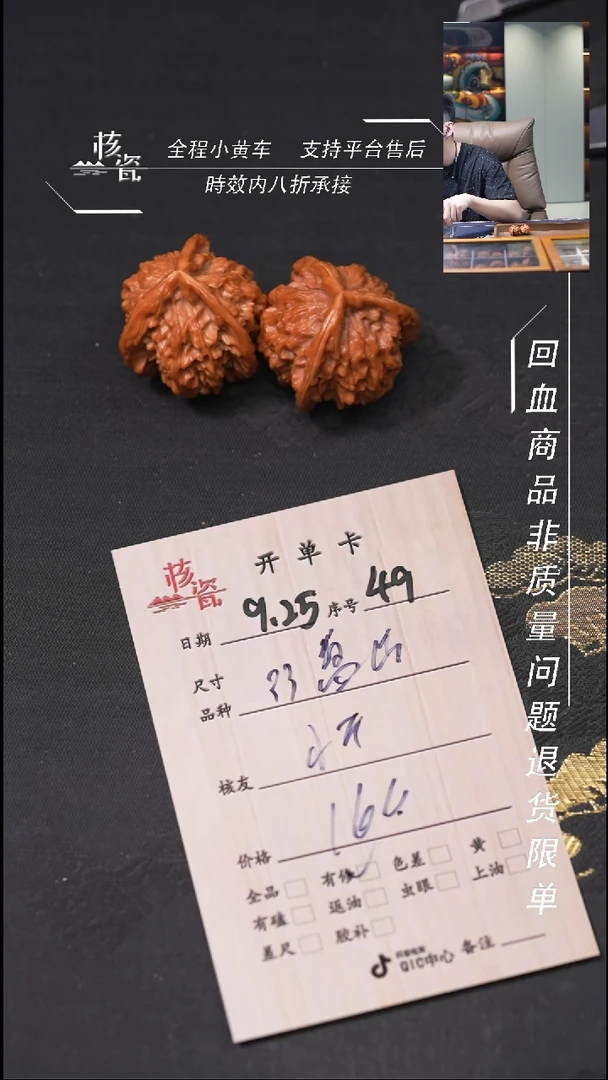 核瓷
全程小黄车 支持平台售后
時效内八折承接
回血商品非质量问题退货限单
核瓷
开单卡
日期 9.25 序号 49
尺寸
品种
核友
价格
全品 有修 色差 黄
有磕 返油 虫眼 上油
差尺 胶补
QIC中心 备注